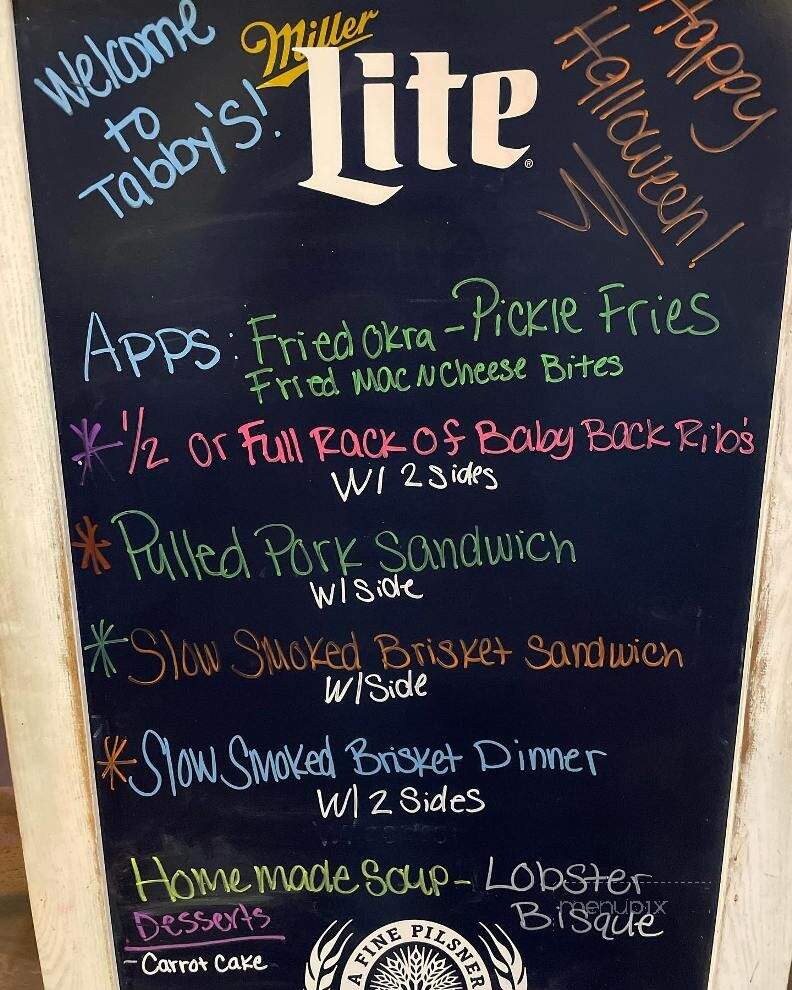 Welcome
to
Tabby's!
Miller
Lite
®
Happy
Halloween!
Apps: Fried Okra - Pickle Fries
Fried Mac N Cheese Bites
* 1/2 or Full Rack of Baby Back Rib's
W/ 2 Sides
* Pulled Pork Sandwich
W/ Side
* Slow Smoked Brisket Sandwich
W/ Side
* Slow Smoked Brisket Dinner
W/ 2 Sides
Homemade Soup - Lobster
Bisque
menupix
Desserts
- Carrot Cake
A FINE PILSNER